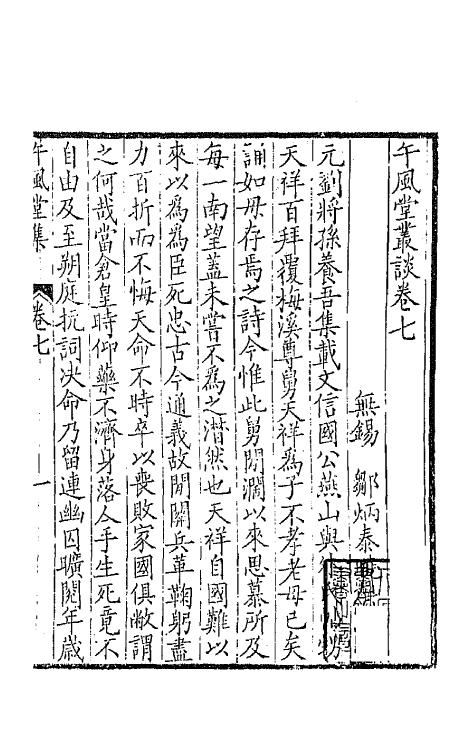 午風堂叢談卷七
無錫 鄒炳泰
元劉將孫養吾集載文信國公燕山與
天祥百拜覆梅溪尊舅天祥為子不孝老母已矣
誦如母存焉之詩今惟此舅閒濶以來思慕所及
每一南望蓋未嘗不為之潸然也天祥自國難以
來以為為臣死忠古今通義故閒關兵革鞠躬盡
力百折而不悔天命不時卒以喪敗家國俱敝謂
之何哉當倉皇時仰藥不濟身落人手生死竟不
自由及至朔庭抗詞决命乃留連幽囚曠閱年歲
午風堂集 卷七 一